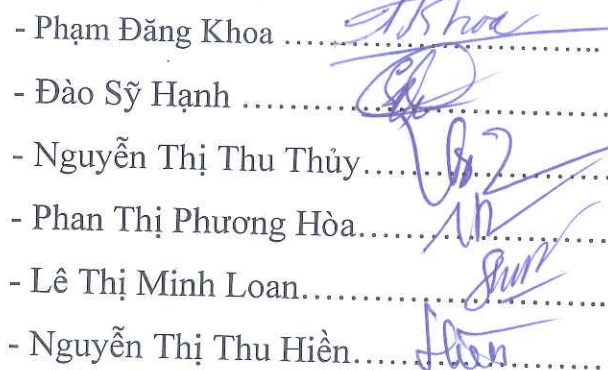 - Phạm Đăng Khoa ................ ĐKhoa
- Đào Sỹ Hạnh ................
- Nguyễn Thị Thu Thủy................
- Phan Thị Phương Hòa................
- Lê Thị Minh Loan................
- Nguyễn Thị Thu Hiền................ Hiền